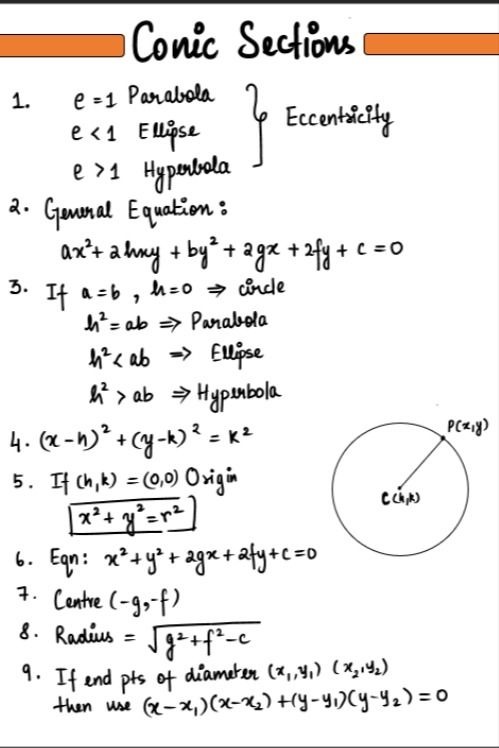 Conic Sections
1. e = 1 Parabola
e < 1 Ellipse
e > 1 Hyperbola
Eccentricity
2. General Equation:
ax² + 2hxy + by² + 2gx + 2fy + c = 0
3. If a = b, h = 0 ⇒ circle
h² = ab ⇒ Parabola
h² < ab ⇒ Ellipse
h² > ab ⇒ Hyperbola
4. (x-h)² + (y-k)² = K²
P(x,y)
C(h,k)
5. If (h,k) = (0,0) Origin
x² + y² = r²
6. Eqn: x² + y² + 2gx + 2fy + c = 0
7. Centre (-g,-f)
8. Radius = √g² + f² - c
9. If end pts of diameter (x₁,y₁) (x₂,y₂)
then use (x-x₁)(x-x₂) + (y-y₁)(y-y₂) = 0